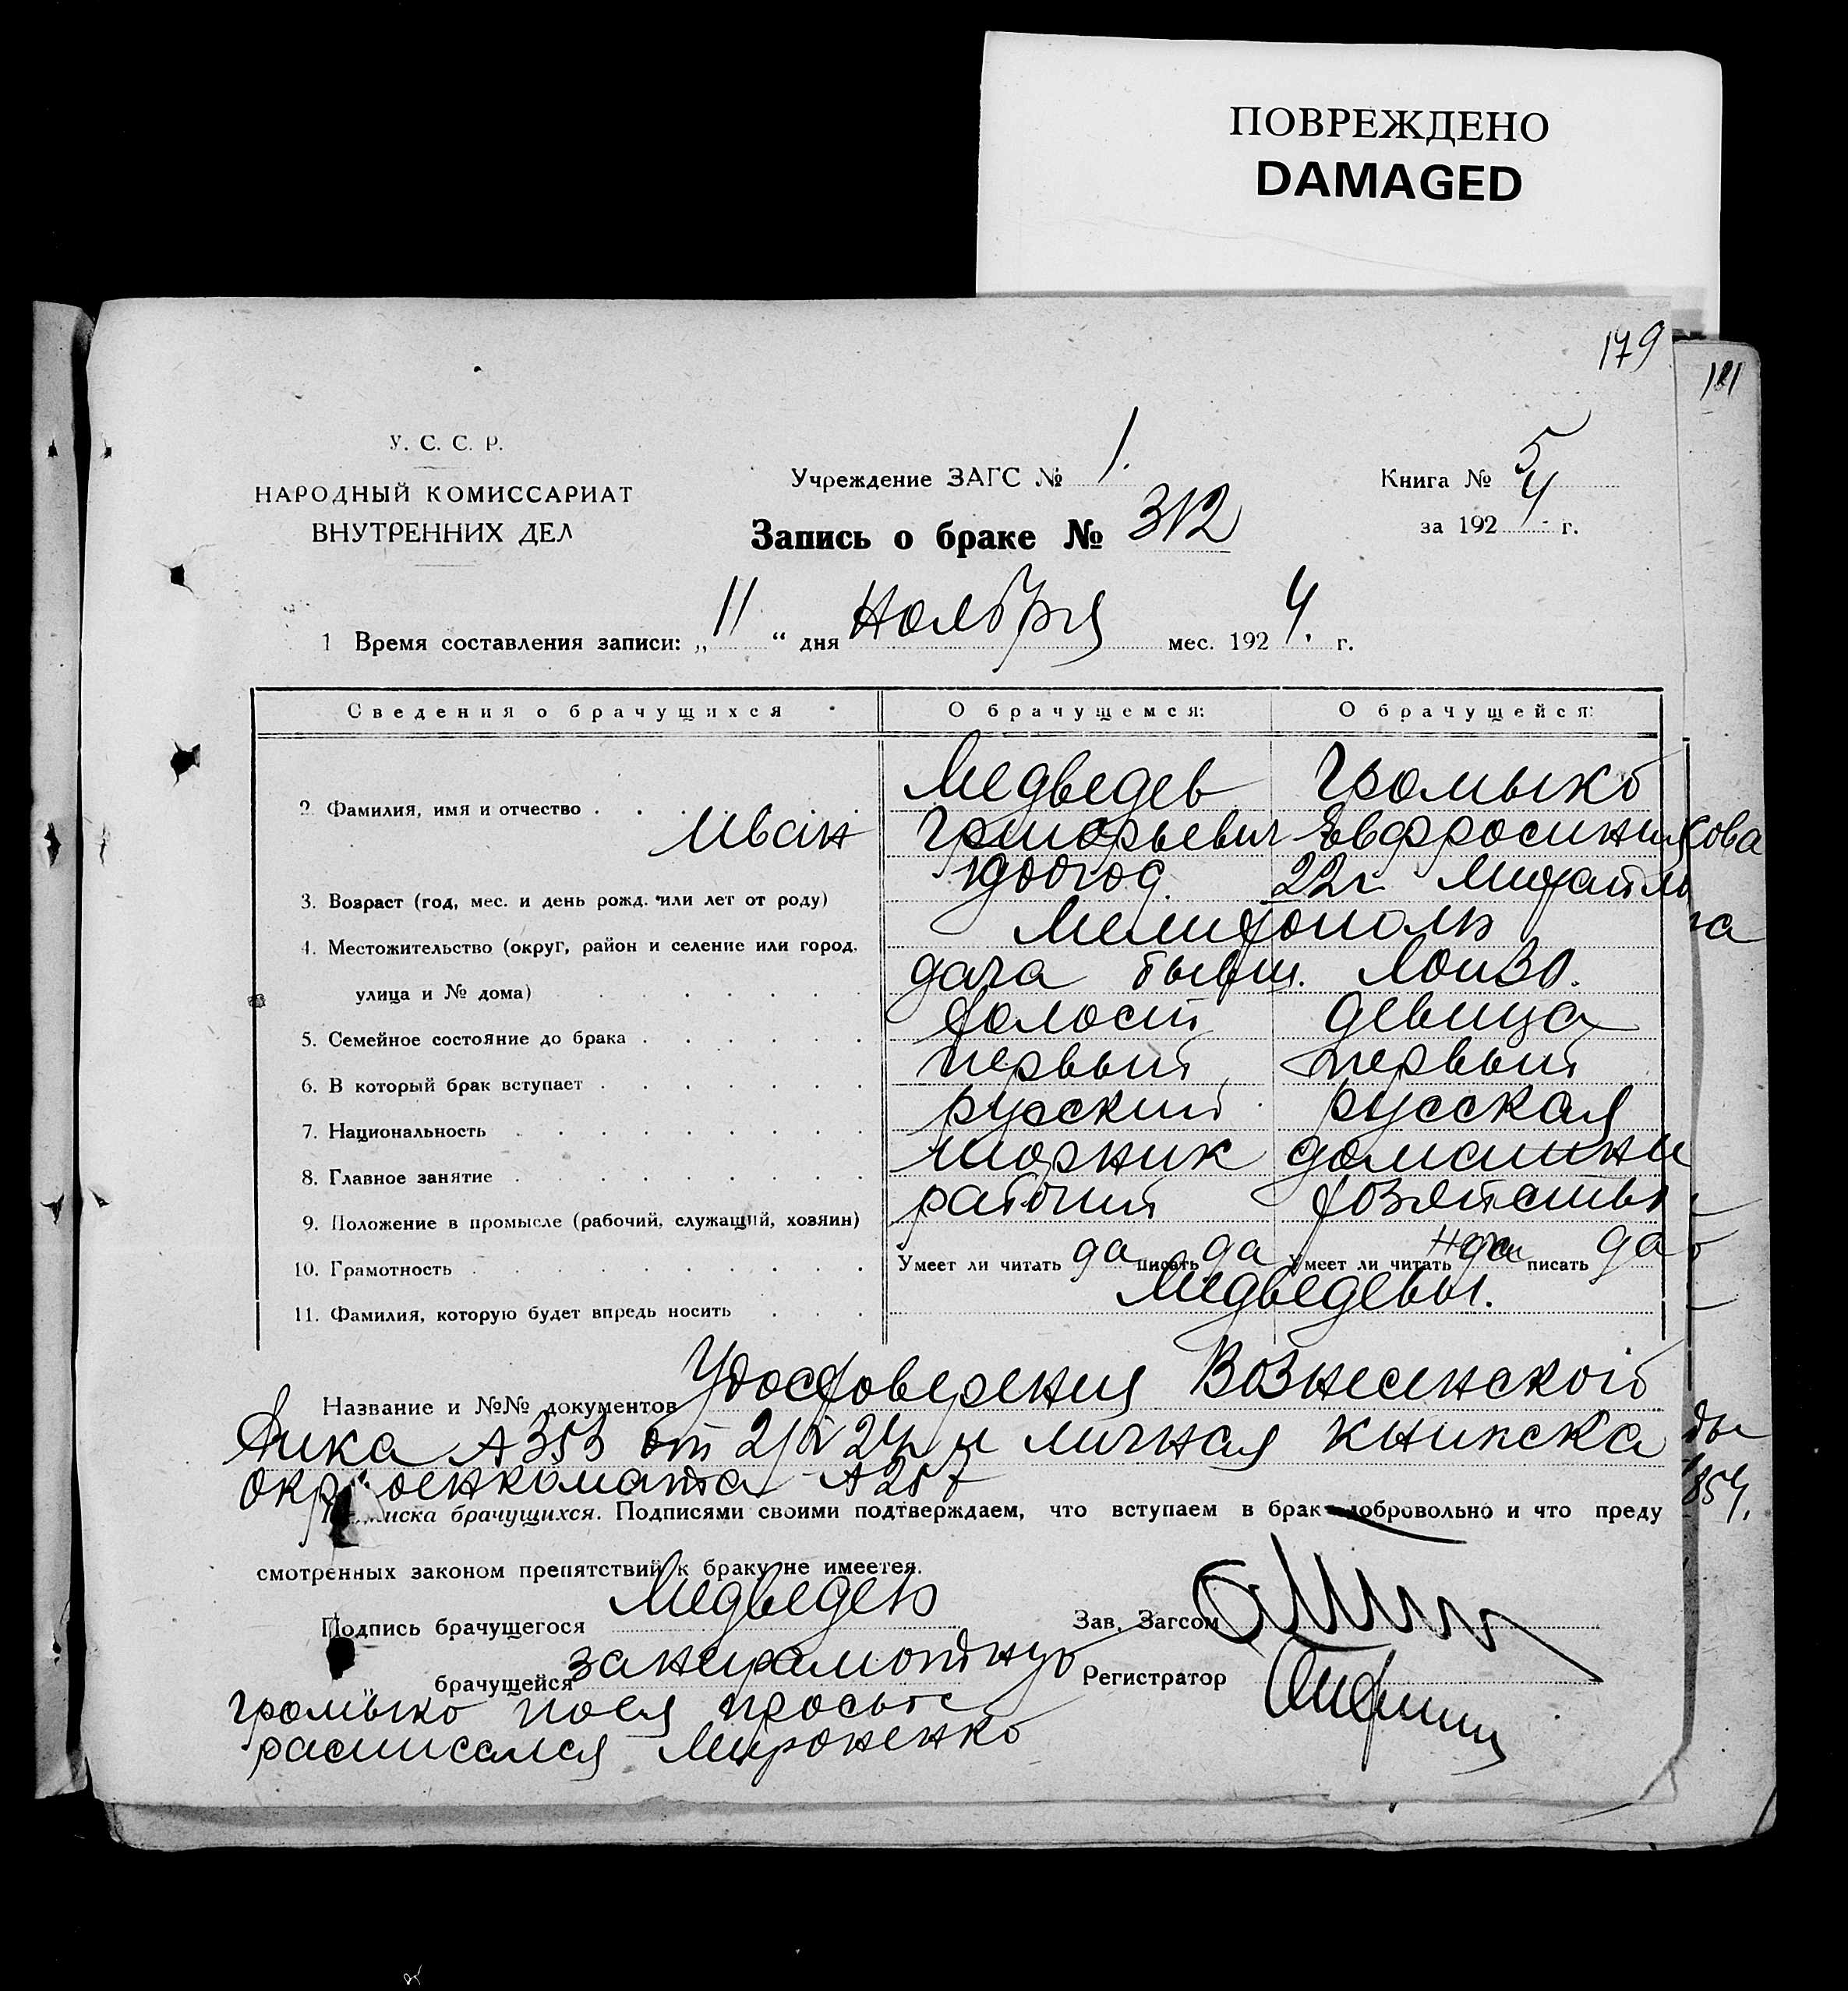 ПОВРЕЖДЕНО
DAMAGED
179
У. С. С. Р.
НАРОДНЫЙ КОМИССАРИАТ
ВНУТРЕННИХ ДЕЛ
Учреждение ЗАГС № 1.
Книга № 5
Запись о браке № 312
за 1924 г.
1 Время составления записи: „11“ дня Ноября мес. 1924. г.
Сведения о брачущихся О брачущемся: О брачущейся:
Медведев Громыко
2. Фамилия, имя и отчество
Иван Григорьевич Евфросиния
1900 год. 22 г. Михайл
3. Возраст (год, мес. и день рожд. или лет от роду)
Мелитополь
4. Местожительство (округ, район и селение или город,
дача бывш.
улица и № дома)
холост девица
5. Семейное состояние до брака
первый первый
6. В который брак вступает
русский русская
7. Национальность
шорник домашн
8. Главное занятие
рабочий хозяйство
9. Положение в промысле (рабочий, служащий, хозяин)
10. Грамотность Умеет ли читать да писать да Умеет ли читать да писать да
Медведевы.
11. Фамилия, которую будет впредь носить
Название и №№ документов Удостоверения Вознесенской
от и личная книжка
окрвоенкомата
Подписка брачущихся. Подписями своими подтверждаем, что вступаем в брак добровольно и что преду
смотренных законом препятствий к браку не имеется.
Подпись брачущегося Медведев
Зав. Загсом
„ брачущейся за неграмотную
Регистратор
Громыко по ея просьбе
расписался Мироненко